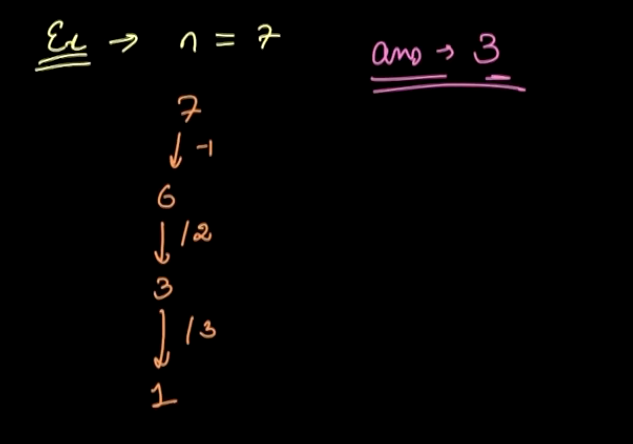 Ex → n = 7
ans → 3
7
↓ -1
6
↓ /2
3
↓ /3
1